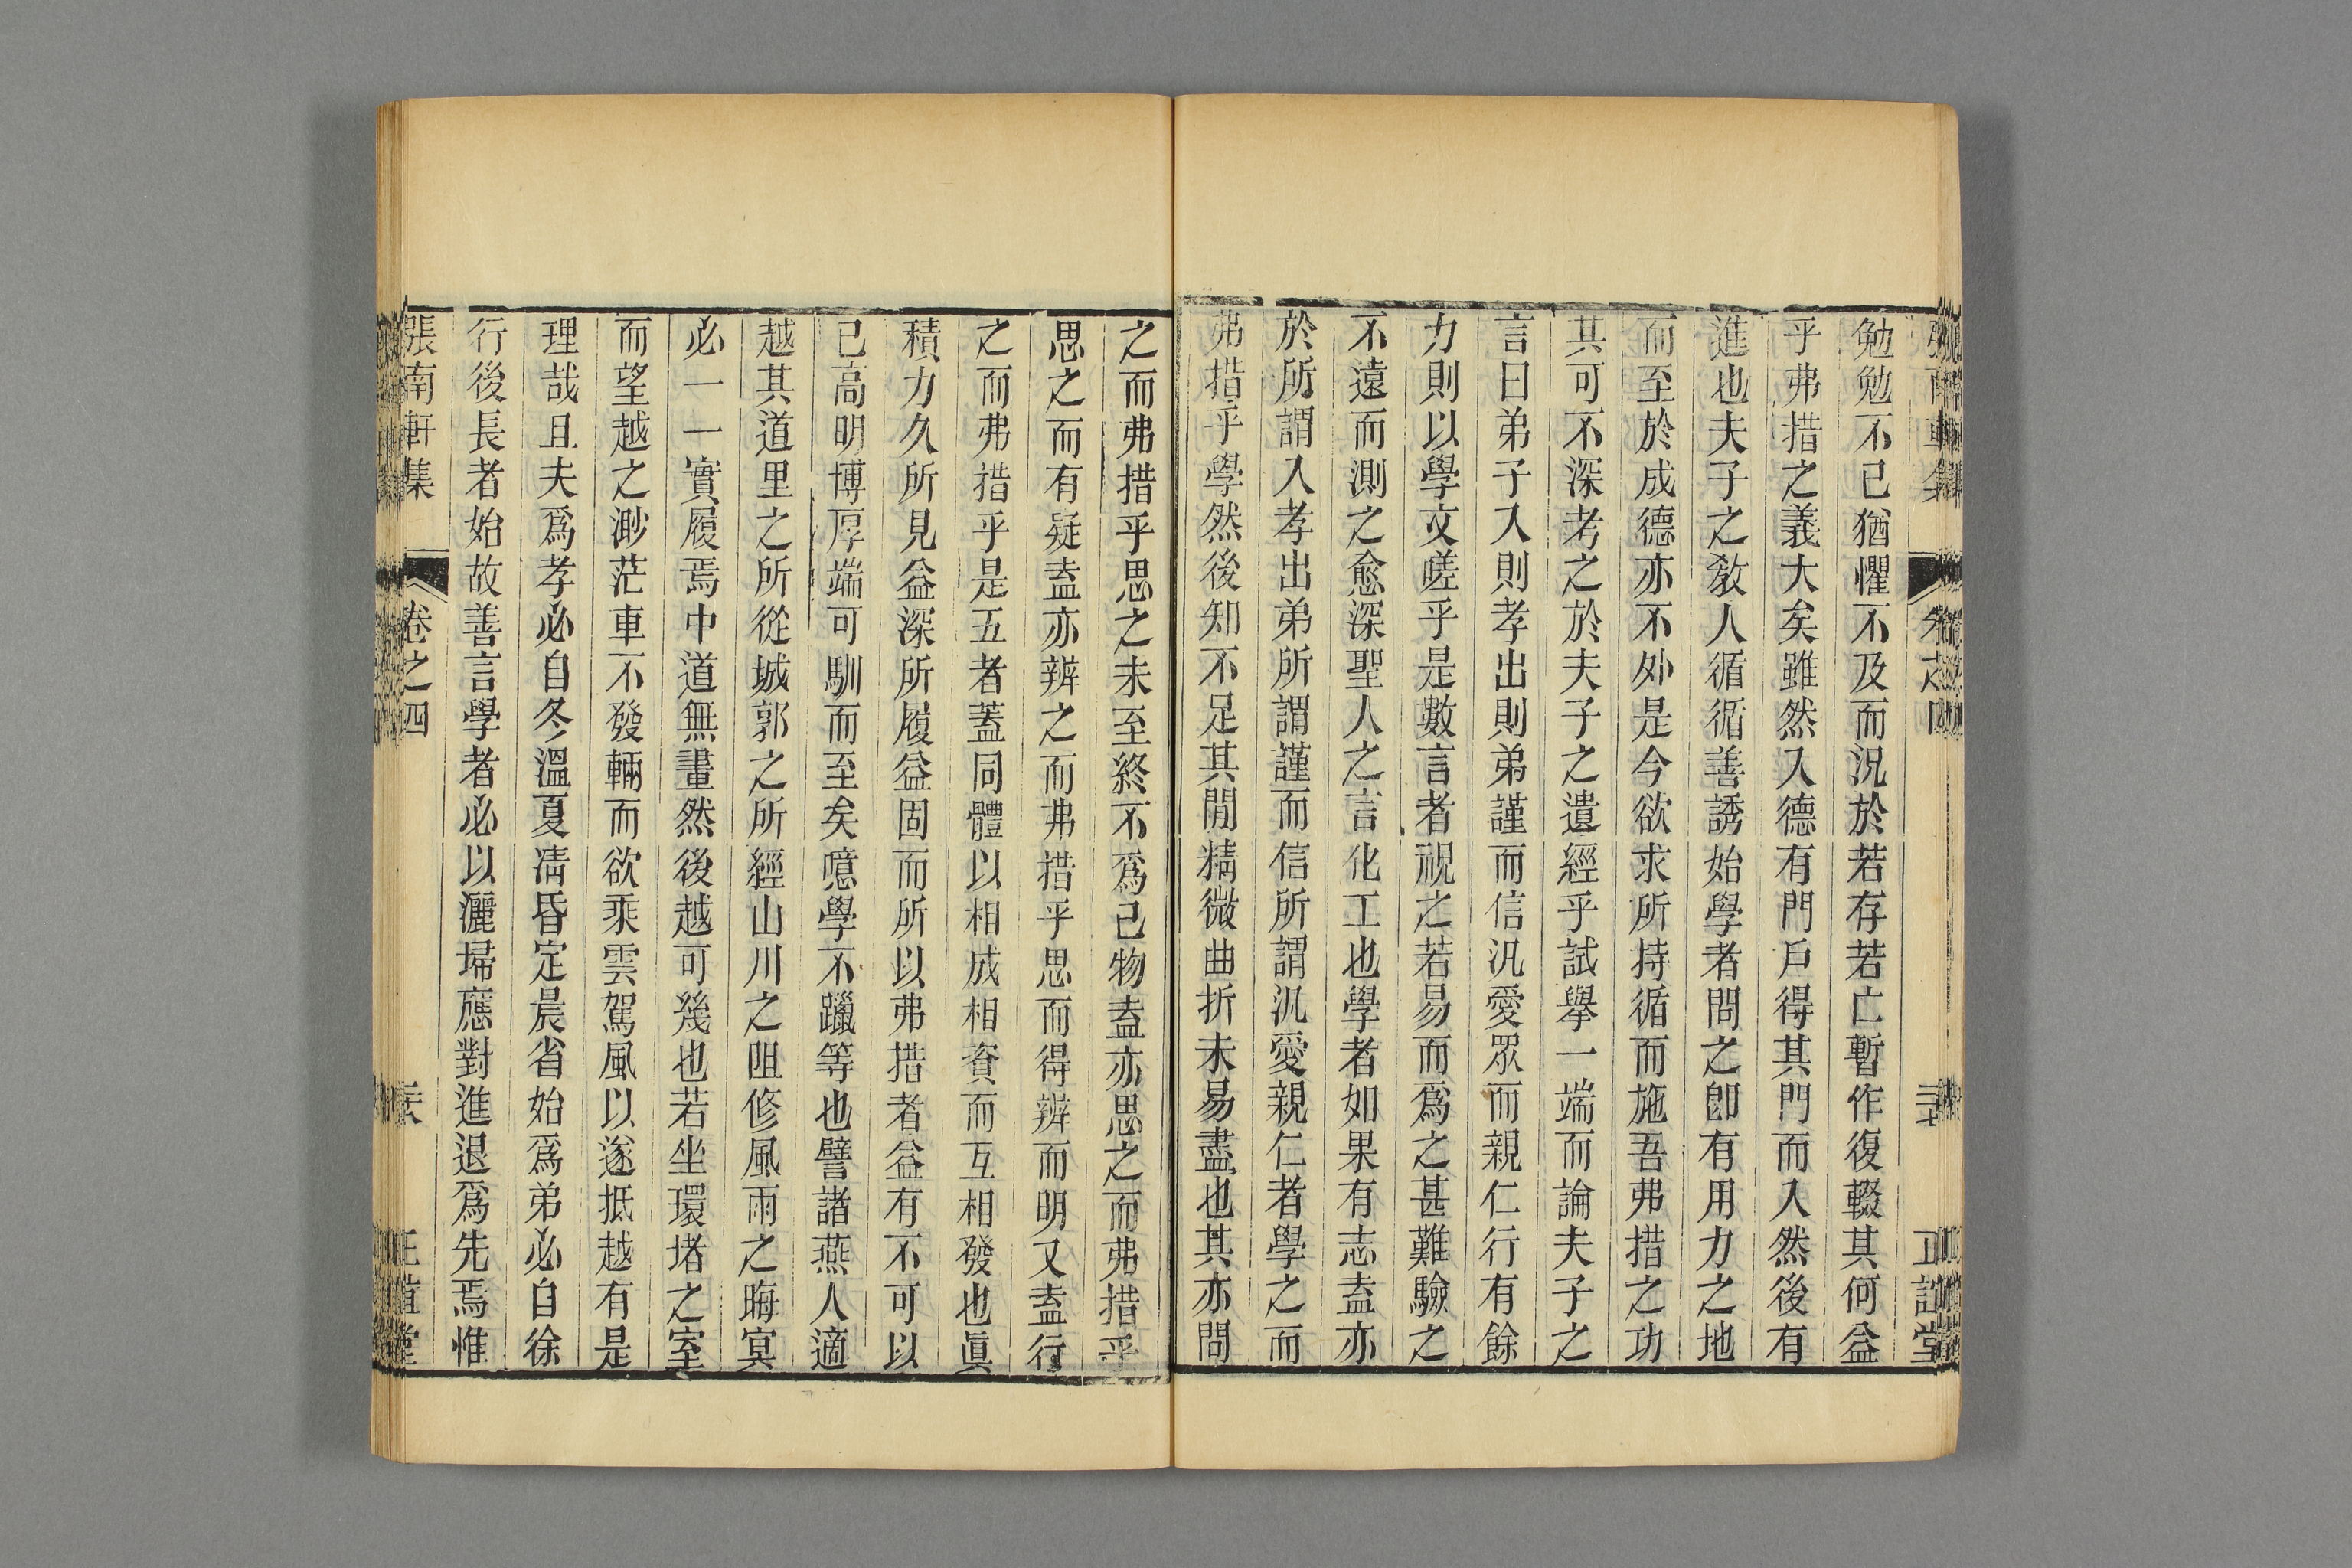 勉勉不已猶懼不及而況於若存若亡暫作復輟其何益
乎弗措之義大矣雖然入德有門戶得其門而入然後有
進也夫子之敎人循循善誘始學者問之卽有用力之地
而至於成德亦不外是今欲求所持循而施吾弗措之功
其可不深考之於夫子之遺經乎試舉一端而論夫子之
言曰弟子入則孝出則弟謹而信汎愛眾而親仁行有餘
力則以學文嗟乎是數言者視之若易而爲之甚難驗之
不遠而測之愈深聖人之言化工也學者如果有志盍亦
於所謂入孝出弟所謂謹而信所謂汎愛親仁者學之而
弗措乎學然後知不足其閒精微曲折未易盡也其亦問
之而弗措乎思之未至終不爲己物盍亦思之而弗措乎
思之而有疑盍亦辨之而弗措乎思而得辨而明又盍行
之而弗措乎是五者蓋同體以相成相資而互相發也眞
積力久所見益深所履益固而所以弗措者益有不可以
已高明博厚端可馴而至矣噫學不躐等也譬諸燕人適
越其道里之所從城郭之所經山川之阻修風雨之晦冥
必一一實履焉中道無畫然後越可幾也若坐環堵之室
而望越之渺茫車不發輛而欲乘雲駕風以遂抵越有是
理哉且夫爲孝必自冬溫夏凊昏定晨省始爲弟必自徐
行後長者始故善言學者必以灑埽應對進退爲先焉惟
張南軒集 卷之四 正誼堂